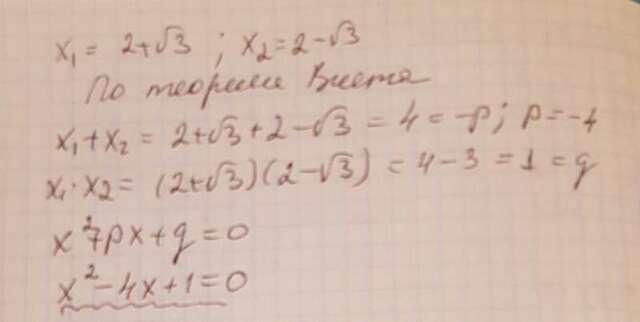 x₁ = 2+√3 ; x₂ = 2-√3
По теореме Виета
x₁+x₂ = 2+√3+2-√3 = 4 = -p; p=-4
x₁·x₂ = (2+√3)(2-√3) = 4-3 = 1 = q
x²+px+q=0
x²-4x+1=0